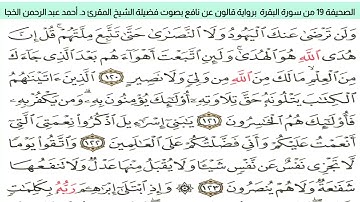 الصحيفة 19 من سورة البقرة برواية قالون عن نافع بصوت فضيلة الشيخ المقرئ د. أحمد عبد الرحمن الخجا
وَلَن تَرْضَىٰ عَنكَ اَلْيَهُودُ وَلَا اَلنَّصَٰرَىٰ حَتَّىٰ تَتَّبِعَ مِلَّتَهُمْ قُلْ إِنَّ
هُدَى اَللَّهِ هُوَ اَلْهُدَىٰ وَلَئِنِ اِتَّبَعْتَ أَهْوَآءَهُم بَعْدَ اَلَّذِى جَآءَكَ
مِنَ اَلْعِلْمِ مَا لَكَ مِنَ اَللَّهِ مِن وَلِىٍّ وَلَا نَصِيرٍ ١٢٠ اَلذِينَ ءَاتَيْنَٰهُمُ
اُلْكِتَٰبَ يَتْلُونَهُ حَقَّ تِلَاوَتِهِ أُوْلَٰٓئِكَ يُؤْمِنُونَ بِهِ وَمَن يَكْفُرْ بِهِ
فَأُوْلَٰٓئِكَ هُمُ اُلْخَٰسِرُونَ ١٢١ يَٰبَنِىٓ إِسْرَٰٓءِيلَ اَذْكُرُوا نِعْمَتِىَ اَلَّتِىٓ
أَنْعَمْتُ عَلَيْكُمْ وَأَنِّى فَضَّلْتُكُمْ عَلَى اَلْعَٰلَمِينَ ١٢٢ وَاتَّقُوا يَوْماً
لَّا تَجْزِى نَفْسٌ عَن نَّفْسٍ شَيْـٔاً وَلَا يُقْبَلُ مِنْهَا عَدْلٌ وَلَا تَنفَعُهَا
شَفَٰعَةٌ وَلَا هُمْ يُنصَرُونَ ١٢٣ وَإِذِ اِبْتَلَىٰٓ إِبْرَٰهِيمَ رَبُّهُ بِكَلِمَٰتٍ